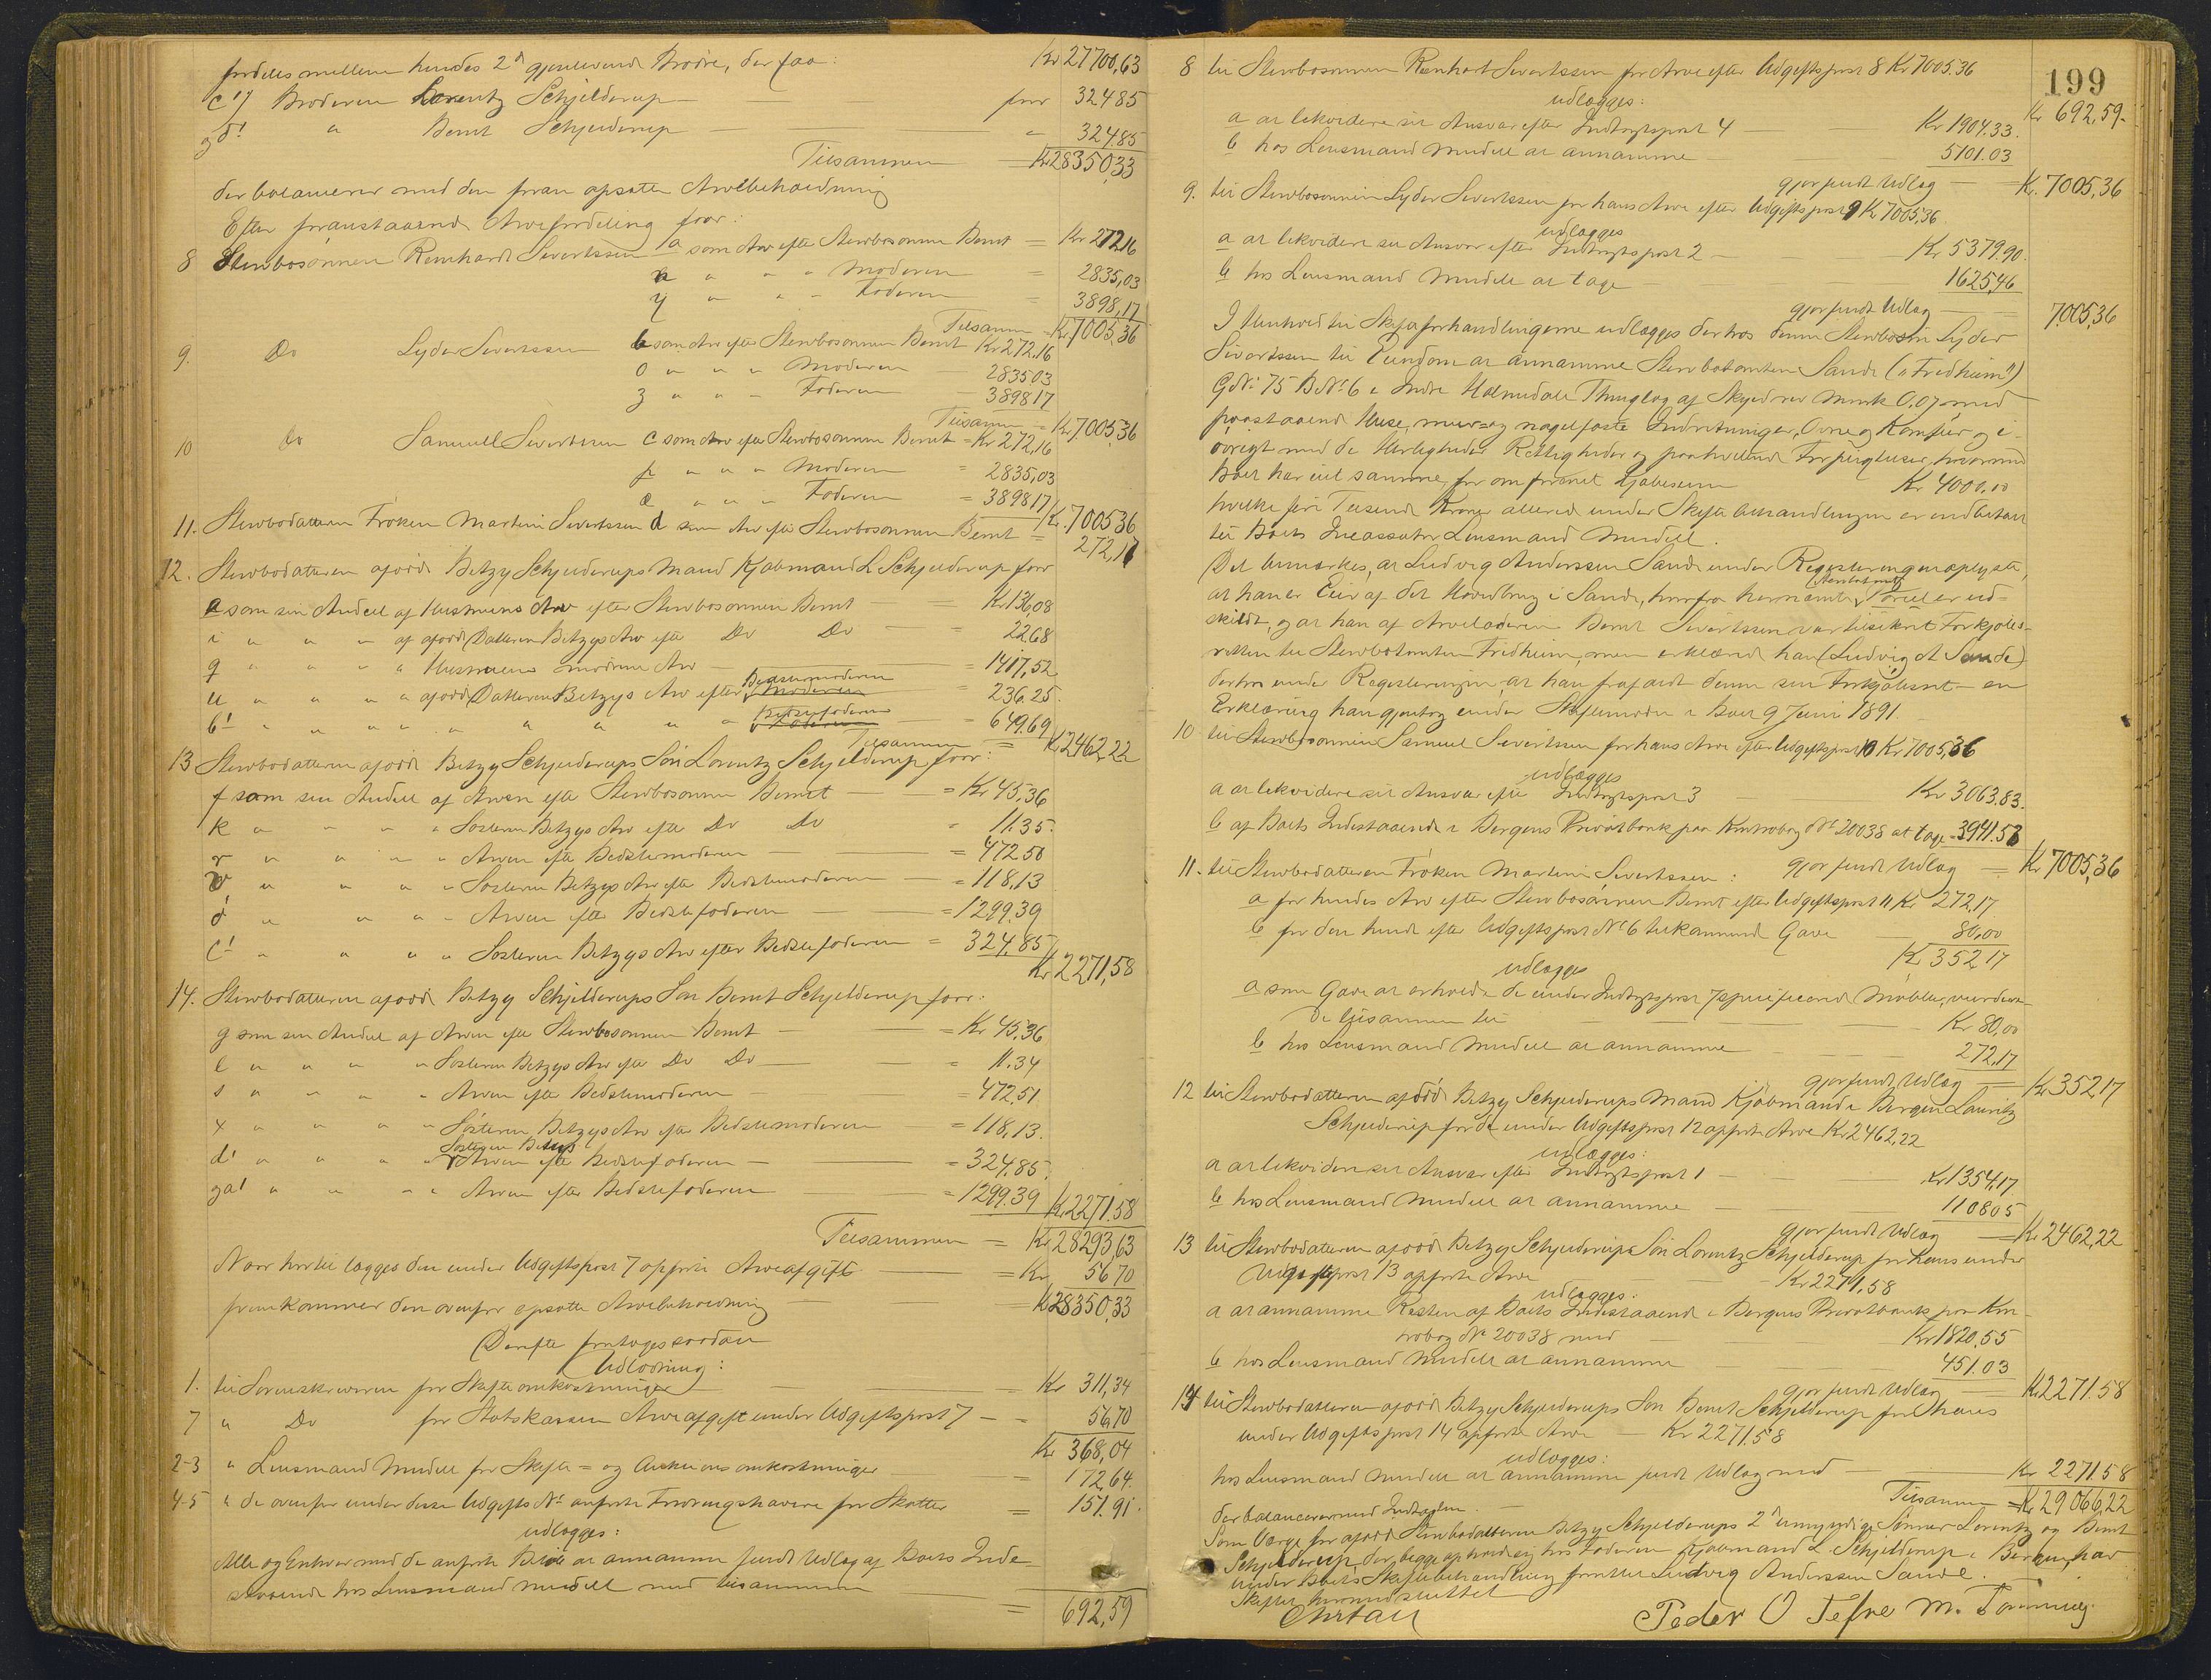 fordeles mellem hendes 2de gjenlevende Brødre, der faa: Kr 27700,63
c') Broderen Lorentz Schjelderup — faar 324,85
og d' " Bernt Schjelderup — " 324,85
Tilsammen Kr 28350,33
der balancerer med den foran opsatte Arvebeholdning
Efter foranstaaende Arvefordeling faar:
8 Stervbosønnen Reinhardt Sivertssen a som Arv efter Stervbosønnen Bernt = Kr 272,16
n " " " Moderen = 2835,03
y " " " Faderen = 3898,17
Tilsammen Kr 7005,36
9. Do Lyder Sivertssen b som Arv efter Stervbosønnen Bernt Kr 272,16
o " " " Moderen 2835,03
z " " " Faderen 3898,17
Tilsammen = Kr 7005,36
10 Do Samuel Sivertssen c som Arv efter Stervbosønnen Bernt = Kr 272,16
p " " " Moderen = 2835,03
æ " " " Faderen = 3898,17
Kr. 7005,36
11. Stervbodatteren Frøken Martine Sivertssen d som Arv efter Stervbosønnen Bernt = 272,17
12. Stervbodatteren afdøde Betzy Schjelderups Mand Kjøbmand L Schjelderup faar
e som sin Andeel af Hustruens Arv efter Stervbosønnen Bernt = Kr 136,08
i " " " af afdøde Datteren Betzys Arv efter Do Do = 22.68
q " " " " Hustruens mødrene Arv = 1417,52
u " " " " afdøde Datteren Betzys Arv efter Bedstemoderen = 236.25
b' " " " " " " " " Bedstefaderen = 649.69
Tilsammen = Kr 2462,22
13 Stervbodatteren afdøde Betzy Schjelderups Søn Lorentz Schjelderup faar:
f som sin Andeel af Arven efter Stervbosønnen Bernt = Kr 45,36
k " " " " Søsteren Betzys Arv efter Do Do = 11.35
r " " " " Arven efter Bedstemoderen = 472.50
v " " " " Søsteren Betzys Arv efter Bedstemoderen = 118,13
ø " " " " Arven efter Bedstefaderen = 1299.39
c' " " " " Søsteren Betzys Arv efter Bedstefaderen = 324,85
Kr 2271,58
14. Stervbodatteren afdøde Betzy Schjelderups Søn Bernt Schjelderup faar:
g som sin Andeel af Arven efter Stervbosønnen Bernt = Kr 45,36
l " " " " Søsteren Betzys Arv efter Do Do = 11.34
s " " " " Arven efter Bedstemoderen = 472,51
x " " " " Søsteren Betzys Arv efter Bedstemoderen = 118,13.
d' " " " " Søsteren Betzys Arven efter Bedstefaderen = 324,85
og a' " " " " Arven efter Bedstefaderen = 1299.39 Kr 2271.58
Tilsammen = Kr 28293,63
Naar hertil lægges den under Udgiftspost 7 opførte Arveafgift = Kr 56.70
fremkommer den ovenfor opsatte Arvebeholdning = Kr 28350,33
Derefter foretoges saadan
Udlodning:
1. til Sorenskriveren for Skifteomkostninger = Kr 311,34
7 " Do for Statskassen Arveafgift under Udgiftspost 7 = 56,70
Kr 368,04
2-3 " Lensmand Mundell for Skifte- og Auktionsomkostninger = 172,64
4-5 " de ovenfor under disse Udgifts No anførte Fordringshavere for Skatter = 151.91.
udlægges:
Alle og Enhver med de anførte Beløb at annamme fuldt Udlæg af Boets Inde-
staaende hos Lensmand Mundell med tilsammen = 692,59
199
Kr 692,59.
8 til Stervbosønnen Reinhart Sivertssen for Arve efter Udgiftspost 8 Kr 7005.36
udlægges:
a at likvidere sit Ansvar efter Indtægtspost 4 — Kr 1904.33.
b hos Lensmand Mundell at annamme 5101.03
gjør fuldt Udlæg Kr. 7005,36
9. til Stervbosønnen Lyder Sivertssen for hans Arve efter Udgiftspost 9 Kr 7005,36
udlægges
a at likvidere sit Ansvar efter Indtægtspost 2 — Kr 5379.90.
b hos Lensmand Mundell at tage 1625,46
gjør fuldt Udlæg 7005,36
I Henhold til Skifteforhandlingerne udlægges derhos denne Stervbosøn Lyder
Sivertssen til Eiendom at annamme Stervbotomten Sande ("Fredheim")
G.No 75 B.No 6 i Indre Holmedals Thinglag af Skyld rev Mark 0.07 med
paastaaende Huse, muur- og nagelfaste Indretninger, Ovne og Komfur og i-
øvrigt med de Herligheder Rettigheder og paahvilende Forpligtelser, hvormed
Boet har eiet samme, for omforenet Kjøbesum Kr 4000,00
hvilke fire Tusende Kroner allerede under Skiftebehandlingen er indbetalt
til Boets Incassator Lensmand Mundell.
Det bemærkes, at Ludvig Anderssen Sande under Registreringen oplyste,
at han er Eier af det Hovedbrug i Sande, hvorfra hernævnte Stervbotomt er ud-
skildt, og at han af Arveladeren Bernt Sivertssen var tilsikret Forkjøbs-
retten til Stervbotomten Fredheim, men erklærede han (Ludvig A Sande)
derhos under Registreringen, at han frafaldt denne sin Forkjøbsret — en
Erklæring han gjentog under Skiftemøde i Boet 9 Juni 1891.
10 til Stervbosønnen Samuel Sivertssen for hans Arve efter Udgiftspost 10 Kr 7005,36
udlægges
a at likvidere sit Ansvar efter Indtægtspost 3 Kr 3063,83.
b af Boets Indestaaende i Bergens Privatbank paa Kontrabog No 20038 at tage 3941.53
gjør fuldt Udlæg = Kr 7005,36
11. til Stervbodatteren Frøken Martine Sivertssen:
a for hendes Arv efter Stervbosønnen Bernt efter Udgiftspost 11 Kr 272,17
b for den hende efter Udgiftspost No 6 tilkommende Gave 80,00
Kr 352,17
udlægges
a som Gave at erholde de under Indtægtspost 7 specificerede Møbler, vurdere-
de tilsammen til Kr 80,00
b hos Lensmand Mundell at annamme 272,17
gjør fuldt Udlæg = Kr 352,17
12 til Stervbodatteren afdøde Betzy Schjelderups Mand Kjøbmand i Bergen Lauritz
Schjelderup for de under Udgiftspost 12 opførte Arve Kr 2462,22
udlægges:
a at likvidere sit Ansvar efter Indtægtspost 1 Kr 1354,17
b hos Lensmand Mundell at annamme 1108.05
gjør fuldt Udlæg = Kr 2462,22
13 til Stervbodatteren afdøde Betzy Schjelderups Søn Lorentz Schjelderup for hans under
Udgiftspost 13 opførte Arve Kr 2271,58
udlægges:
a at annamme Resten af Boets Indestaaende i Bergens Privatbank paa Kon-
trabog No 20038 med Kr 1820,55
b hos Lensmand Mundell at annamme 451.03
gjør fuldt Udlæg = Kr 2271.58
14 til Stervbodatteren afdøde Betzy Schjelderups Søn Bernt Schjelderup for hans
under Udgiftspost 14 opførte Arve — Kr 2271.58
udlægges:
hos Lensmand Mundell at annamme fuldt Udlæg med Kr 2271.58
Tilsammen = Kr 29066,22
der balancerer med Indtægten.
Som Værge for afdøde Stervbodatteren Betzy Schjelderups 2de umyndige Sønner Lorentz og Bernt
Schjelderup, der begge opholder sig hos Faderen Kjøbmand L. Schjelderup i Bergen, har
under Boets Skiftebehandling fremmødt Ludvig Anderssen Sande.
Skiftet hermed sluttet
Peder O Tefre M.